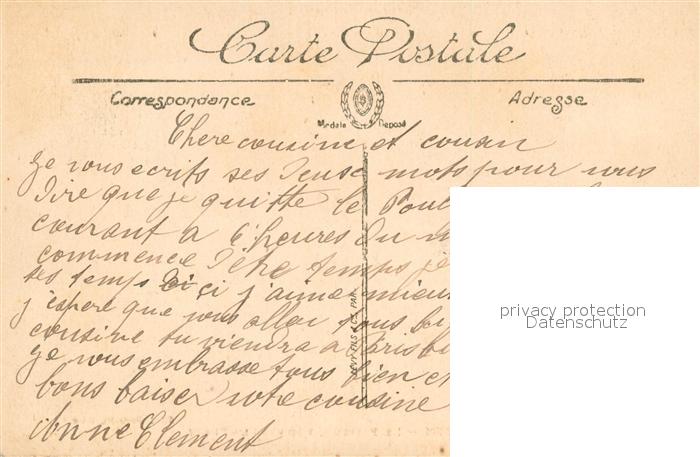 Carte Postale
Correspondance
Adresse
Modèle Déposé
Chere cousine et cousin
je vous ecrits ses deuse mots pour vous
dire que je quitte le Poul
courant a 6 heures du
commence d'être temps je
ses temps ci j'aime mieux
j'espere que vous allai tous bi
cousine tu viendra a Paris bi
je vous embrasse tous bien et
bons baiser votre cousine
Anne Clement
LEVY FILS & Cie PARIS
privacy protection
Datenschutz